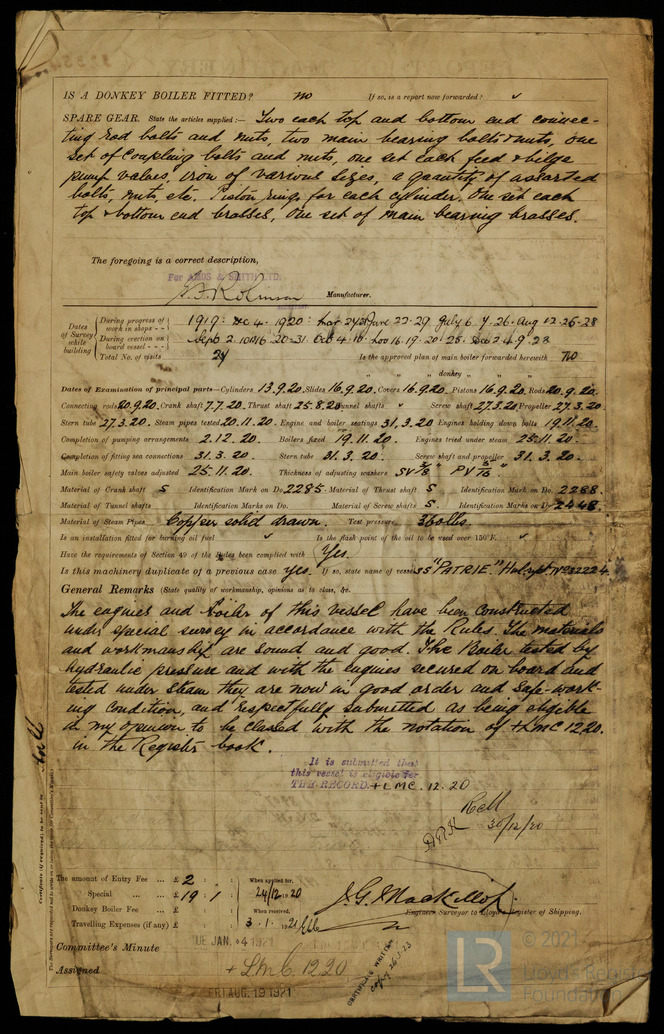 IS A DONKEY BOILER FITTED? no If so, is a report now forwarded? ✓
SPARE GEAR. State the articles supplied:— Two each top and bottom end connec-
ting rod bolts and nuts, two main bearing bolts & nuts, one
set of coupling bolts and nuts, one set each feed & bilge
pump valves, iron of various sizes, a quantity of assorted
bolts, nuts, etc. Piston rings for each cylinder. One set each
top & bottom end brasses, One set of main bearing brasses.
The foregoing is a correct description,
For AMOS & SMITH LTD.
Robinson Manufacturer.
Dates of Survey while building
During progress of work in shops - - 1919: Dec 4. 1920: June 22-29 July 6 7.26. Aug 12.25.28
During erection on board vessel - - - Sept 2. 20-31 Oct 4 Nov 16.19.20.25. Dec 2.4.9.23
Total No. of visits 24 Is the approved plan of main boiler forwarded herewith no
" " " donkey " " "
Dates of Examination of principal parts—Cylinders 13.9.20. Slides 16.9.20. Covers 16.9.20. Pistons 16.9.20. Rods 20.9.20.
Connecting rods 20.9.20. Crank shaft 7.7.20. Thrust shaft 25.8.20 Tunnel shafts " Screw shaft 27.3.20 Propeller 27.3.20.
Stern tube 27.3.20. Steam pipes tested 20.11.20. Engine and boiler seatings 31.3.20 Engines holding down bolts 19.11.20.
Completion of pumping arrangements 2.12.20. Boilers fixed 19.11.20. Engines tried under steam 25.11.20.
Completion of fitting sea connections 31.3.20. Stern tube 31.3.20. Screw shaft and propeller 31.3.20.
Main boiler safety valves adjusted 25.11.20. Thickness of adjusting washers SV PV
Material of Crank shaft S Identification Mark on Do. 2285. Material of Thrust shaft S Identification Mark on Do. 2288.
Material of Tunnel shafts Identification Marks on Do. Material of Screw shafts S. Identification Marks on Do. 2448.
Material of Steam Pipes Copper solid drawn. Test pressure 360 lbs.
Is an installation fitted for burning oil fuel ✓ Is the flash point of the oil to be used over 150°F. ✓
Have the requirements of Section 49 of the Rules been complied with Yes.
Is this machinery duplicate of a previous case Yes. If so, state name of vessel SS "PATRIE" Hull rpt No 32224.
General Remarks (State quality of workmanship, opinions as to class, &c.
The engines and boiler of this vessel have been constructed
under special survey in accordance with the Rules. The materials
and workmanship are sound and good. The Boiler tested by
hydraulic pressure and with the engines secured on board and
tested under steam they are now in good order and safe work-
ing condition, and respectfully submitted as being eligible
in my opinion to be classed with the notation of +LMC 12.20.
in the Register book.
It is submitted that
this vessel is eligible for
THE RECORD. + LMC. 12.20
30/12/20
Certificate (if required) to be sent to Hull
The amount of Entry Fee ... £ 2 : :
Special ... ... £ 19 : 1 :
Donkey Boiler Fee ... £ : :
Travelling Expenses (if any) £ : :
When applied for, 24/12/1920
When received, 3.1.1921
J. G. Mackillop.
Engineer Surveyor to Lloyd's Register of Shipping.
Committee's Minute TUE JAN. 4 1921
Assigned + LMC 12.20
FRI AUG. 19 1921
CERTIFICATE WRITTEN
LR
© 2021
Lloyd's Register
Foundation